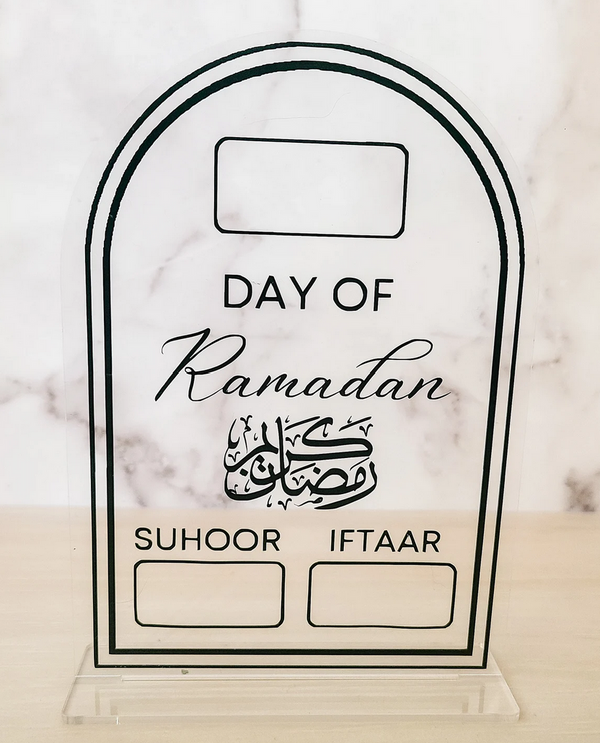 DAY OF
Ramadan
رمضان كريم
SUHOOR IFTAAR